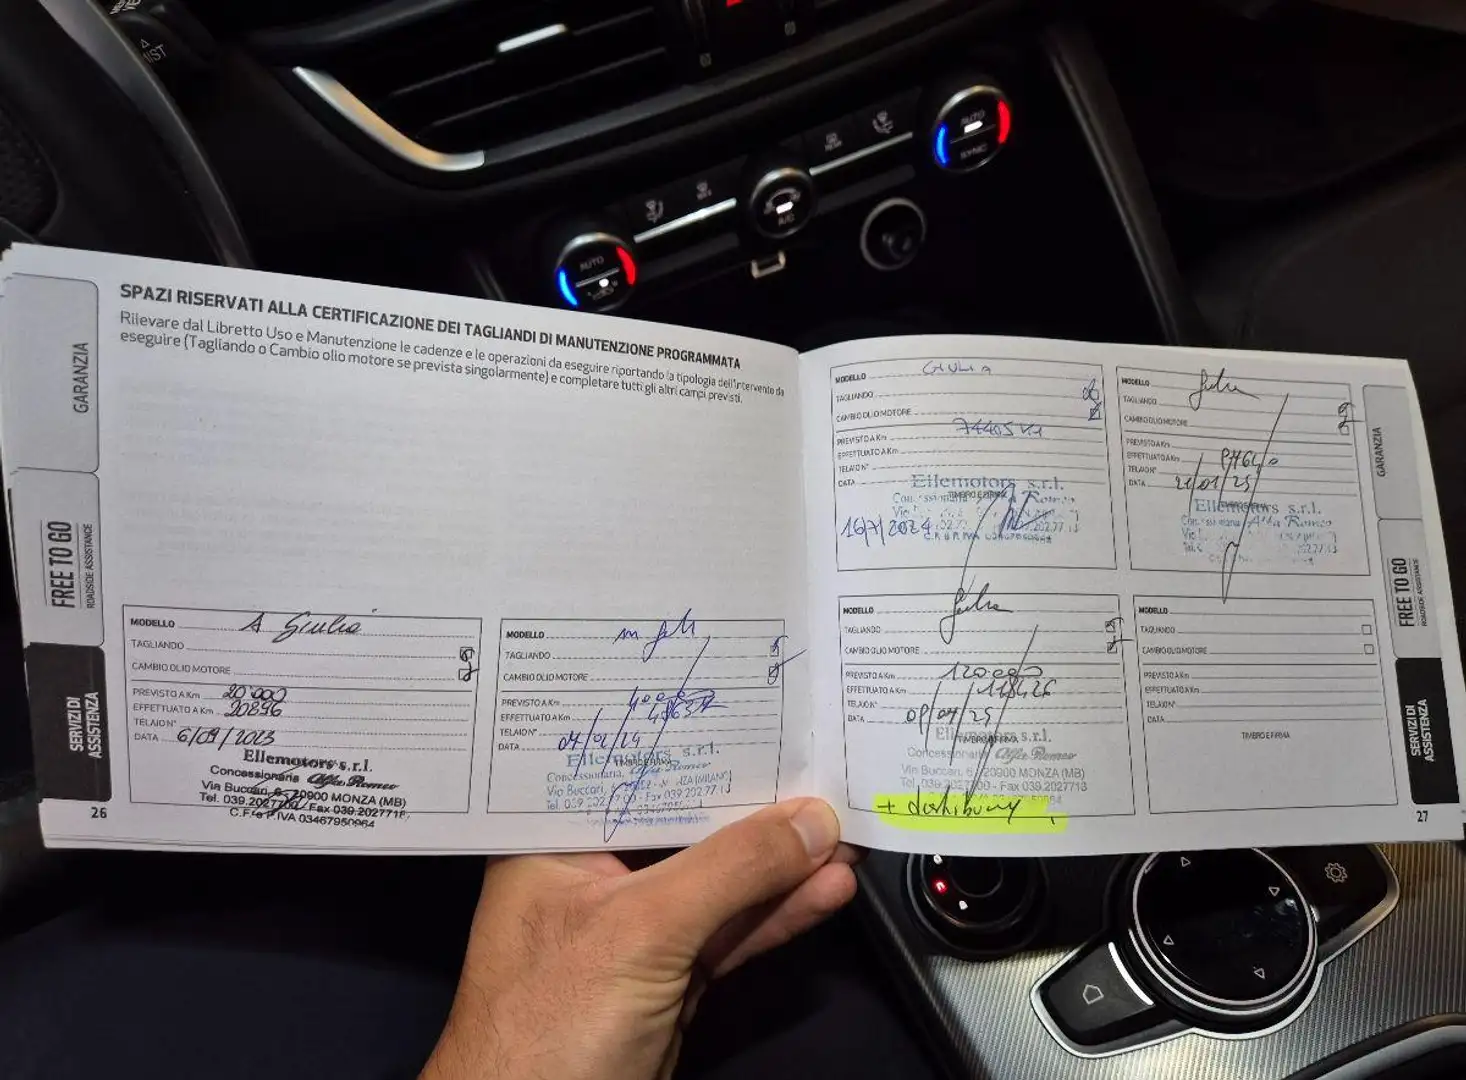 MIST
AUTO
A/C
AUTO
SYNC
GARANZIA
FREE TO GO
ROADSIDE ASSISTANCE
SERVIZI DI
ASSISTENZA
SPAZI RISERVATI ALLA CERTIFICAZIONE DEI TAGLIANDI DI MANUTENZIONE PROGRAMMATA
Rilevare dal Libretto Uso e Manutenzione le cadenze e le operazioni da eseguire riportando la tipologia dell'intervento da
eseguire (Tagliando o Cambio olio motore se prevista singolarmente) e completare tutti gli altri campi previsti.
MODELLO A Giulia
TAGLIANDO
CAMBIO OLIO MOTORE
PREVISTO A Km 20.000
EFFETTUATO A Km 20896
TELAIO N°
DATA 6/09/2023
Ellemotors s.r.l.
Concessionaria Alfa Romeo
Via Buccari, 6 - 20900 MONZA (MB)
Tel. 039.2027700 / Fax 039.2027713
C.F. e P.IVA 03467950964
26
MODELLO
TAGLIANDO
CAMBIO OLIO MOTORE
PREVISTO A Km
EFFETTUATO A Km
TELAIO N°
DATA
TIMBRO E FIRMA
Ellemotors s.r.l.
Concessionaria Alfa Romeo
Via Buccari
MODELLO GIULIA
TAGLIANDO
CAMBIO OLIO MOTORE
PREVISTO A Km 74405 KM
EFFETTUATO A Km
TELAIO N°
DATA
TIMBRO E FIRMA
Ellemotors s.r.l.
16/7/2024
MODELLO Giulia
TAGLIANDO
CAMBIO OLIO MOTORE
PREVISTO A Km
EFFETTUATO A Km
TELAIO N°
DATA 21/01/25
TIMBRO E FIRMA
Ellemotors s.r.l.
Alfa Romeo
MODELLO Giulia
TAGLIANDO
CAMBIO OLIO MOTORE
PREVISTO A Km 120.000
EFFETTUATO A Km 118426
TELAIO N°
DATA 09/07/25
TIMBRO E FIRMA
Ellemotors s.r.l.
Concessionaria Alfa Romeo
Via Buccari, 6 - 20900 MONZA (MB)
Tel. 039.2027700 - Fax 039.2027713
MODELLO
TAGLIANDO
CAMBIO OLIO MOTORE
PREVISTO A Km
EFFETTUATO A Km
TELAIO N°
DATA
TIMBRO E FIRMA
27
GARANZIA
FREE TO GO
ROADSIDE ASSISTANCE
SERVIZI DI
ASSISTENZA